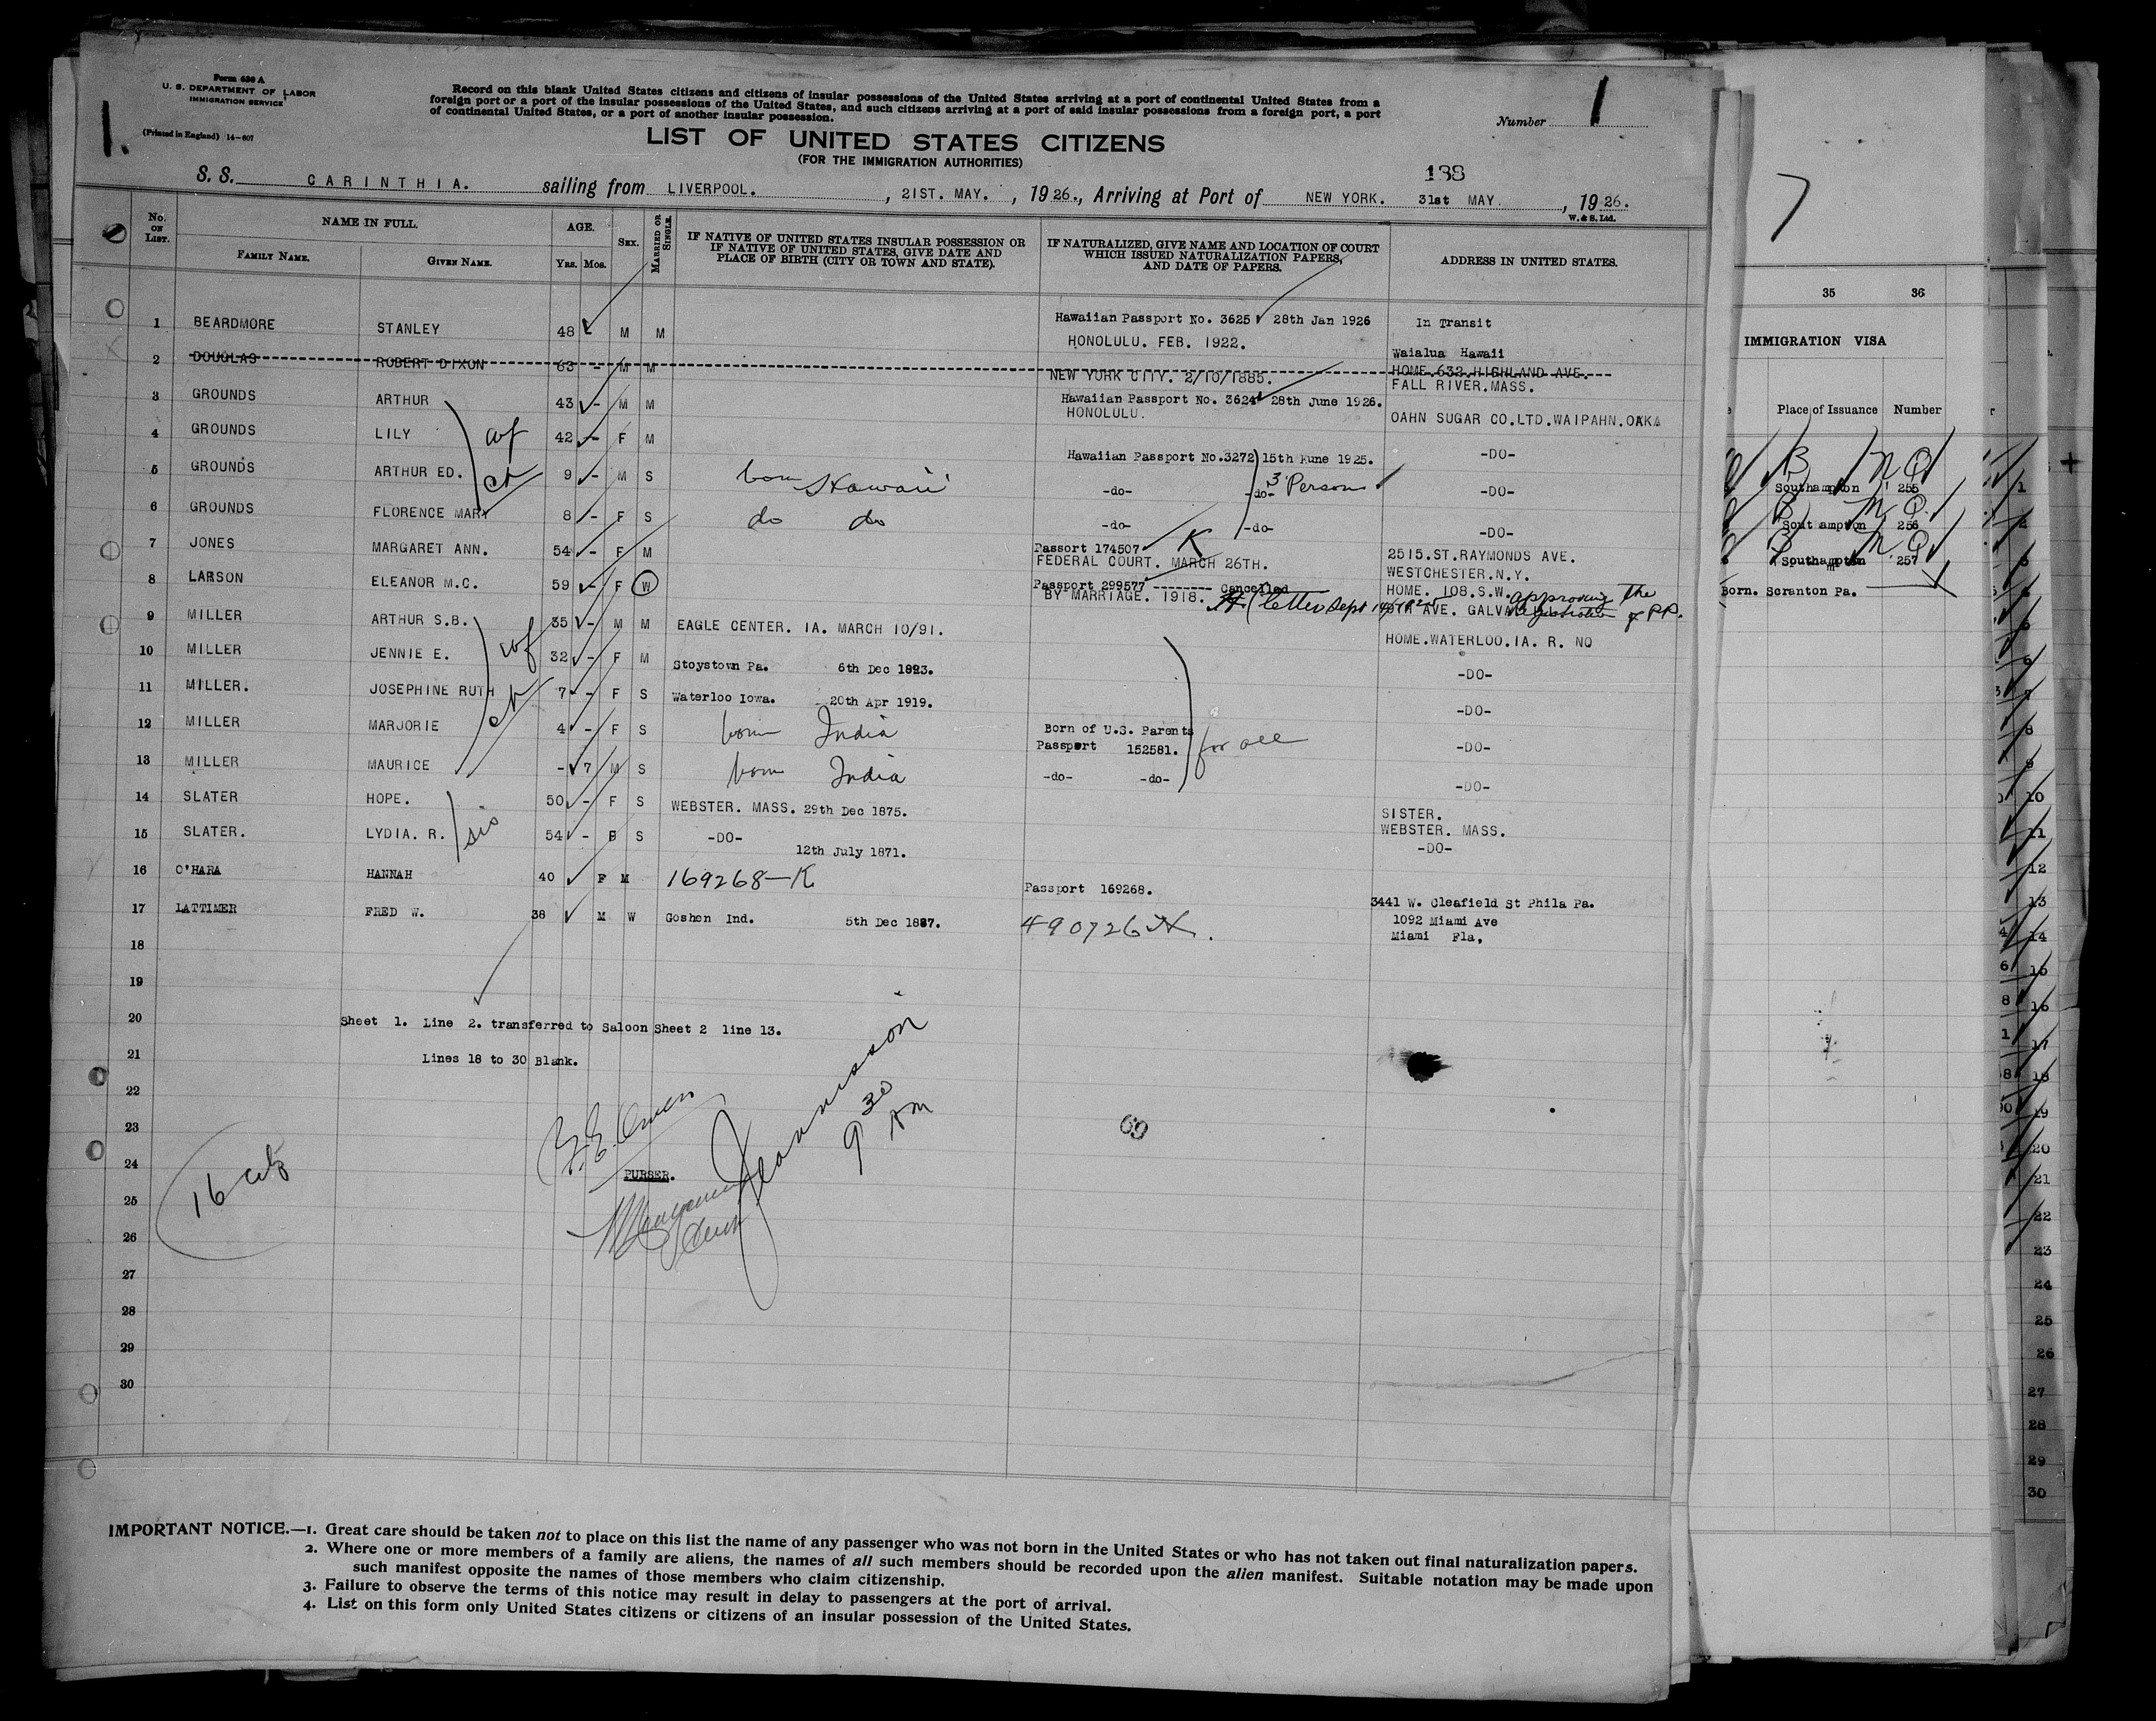 Form 630 A
U. S. DEPARTMENT OF LABOR
IMMIGRATION SERVICE
(Printed in England) 14-607
1.
Record on this blank United States citizens and citizens of insular possessions of the United States arriving at a port of continental United States from a
foreign port or a port of the insular possessions of the United States, and such citizens arriving at a port of said insular possessions from a foreign port, a port
of continental United States, or a port of another insular possession.
Number 1
LIST OF UNITED STATES CITIZENS
(FOR THE IMMIGRATION AUTHORITIES)
138
S. S. CARINTHIA. sailing from LIVERPOOL. , 21ST. MAY. , 1926., Arriving at Port of NEW YORK. 31st MAY. , 1926.
W. & S. Ltd.
No. ON LIST. NAME IN FULL. AGE. SEX. MARRIED OR SINGLE. IF NATIVE OF UNITED STATES INSULAR POSSESSION OR IF NATIVE OF UNITED STATES, GIVE DATE AND PLACE OF BIRTH (CITY OR TOWN AND STATE). IF NATURALIZED, GIVE NAME AND LOCATION OF COURT WHICH ISSUED NATURALIZATION PAPERS, AND DATE OF PAPERS. ADDRESS IN UNITED STATES.
FAMILY NAME. GIVEN NAME. Yrs. Mos.
1 BEARDMORE STANLEY 48 M M Hawaiian Passport No. 3625 28th Jan 1926 In Transit
HONOLULU. FEB. 1922.
Waialua Hawaii
2 DOUGLAS ROBERT DIXON 63 - M M NEW YORK CITY. 2/10/1885. HOME.632.HIGHLAND AVE.
FALL RIVER.MASS.
3 GROUNDS ARTHUR 43 - M M Hawaiian Passport No. 3624 28th June 1926.
HONOLULU. OAHN SUGAR CO.LTD.WAIPAHN.OAKA
4 GROUNDS LILY wf 42 - F M Hawaiian Passport No.3272 15th Fune 1925. -DO-
5 GROUNDS ARTHUR ED. ch 9 - M S born Hawaii -do- -do- 3 Persons -DO-
6 GROUNDS FLORENCE MARY 8 - F S do do -do- -do- -DO-
7 JONES MARGARET ANN. 54 - F M Passort 174507 K
FEDERAL COURT. MARCH 26TH. 2515.ST.RAYMONDS AVE.
WESTCHESTER.N.Y.
8 LARSON ELEANOR M.C. 59 - F W Passport 299577 -------- Cancelled
BY MARRIAGE. 1918. (letter Sept HOME. 108.S.W. approving the
AVE. GALVA of PP.
9 MILLER ARTHUR S.B. 35 - M M EAGLE CENTER. IA. MARCH 10/91. HOME.WATERLOO.IA. R. NO
10 MILLER JENNIE E. wf 32 - F M Stoystown Pa. 6th Dec 1893. -DO-
11 MILLER. JOSEPHINE RUTH ch 7 - F S Waterloo Iowa. 20th Apr 1919. -DO-
12 MILLER MARJORIE 4 - F S born India Born of U.S. Parents
Passport 152581. for all -DO-
13 MILLER MAURICE - 7 M S born India -do- -do- -DO-
14 SLATER HOPE. 50 - F S WEBSTER. MASS. 29th Dec 1875. SISTER.
WEBSTER. MASS.
15 SLATER. LYDIA. R. sis 54 - F S -DO- 12th July 1871. -DO-
16 O'HARA HANNAH 40 F M 169268-K Passport 169268. 3441 W. Cleafield St Phila Pa.
17 LATTIMER FRED W. 38 M W Goshen Ind. 5th Dec 1887. 490726 1092 Miami Ave
Miami Fla,
18
19
20 Sheet 1. Line 2. transferred to Saloon Sheet 2 line 13.
21 Lines 18 to 30 Blank.
22
23
24 PURSER.
25
26
27
28
29
30
16
9 30 AM
69
IMPORTANT NOTICE.—1. Great care should be taken not to place on this list the name of any passenger who was not born in the United States or who has not taken out final naturalization papers.
2. Where one or more members of a family are aliens, the names of all such members should be recorded upon the alien manifest. Suitable notation may be made upon
such manifest opposite the names of those members who claim citizenship.
3. Failure to observe the terms of this notice may result in delay to passengers at the port of arrival.
4. List on this form only United States citizens or citizens of an insular possession of the United States.
7
35 36
IMMIGRATION VISA
Place of Issuance Number
Southampton 255
Sout ampton 256
Southampton 257
Born. Scranton Pa.
10
11
12
13
14
15
16
17
18
19
20
21
22
23
24
25
26
27
28
29
30